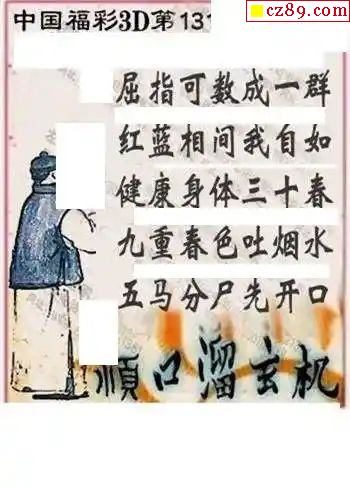 cz89.com
中国福彩3D第131
屈指可数成一群
红蓝相间我自如
健康身体三十春
九重春色吐烟水
五马分尸先开口
顺口溜玄机